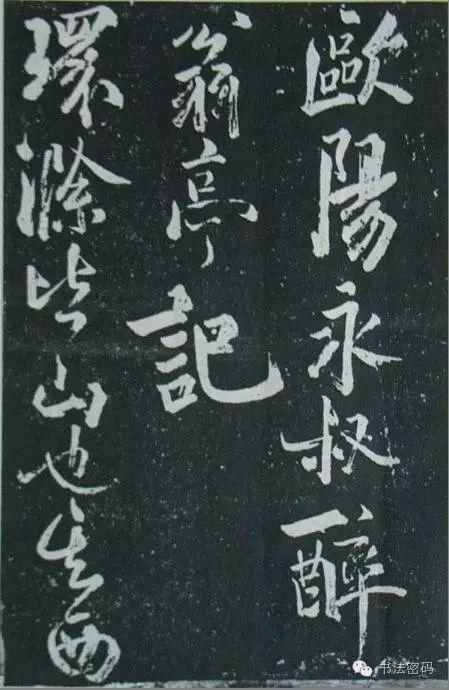 歐陽永叔醉
翁亭記
環滁皆山也其西
书法密码